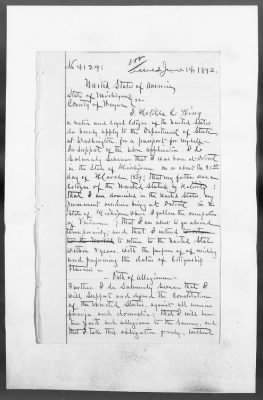 No 4129. Issued June 14, 1892.
United States of America
State of Michigan
County of Wayne ss
I, Clotilde C. King
a native and loyal citizen of the United States
do hereby apply to the Department of State
at Washington for a passport for myself.
In support of the above application I do
solemnly swear that I was born at Detroit
in the State of Michigan on or about the
day of March,
citizen of the United States
that I am domiciled in the United States my
permanent residence being at Detroit in the
State of Michigan where I follow the occupation
of that I am about to go abroad
temporarily; and that I intend
to return to the United States
within years with the purpose of residing
and performing the duties of citizenship
therein
Oath of allegiance
Further I do solemnly swear that I
will support and defend the Constitution
of the United States, against all enemies
foreign and domestic; that I will bear
true faith and allegiance to the same, and
that I take this obligation freely, without